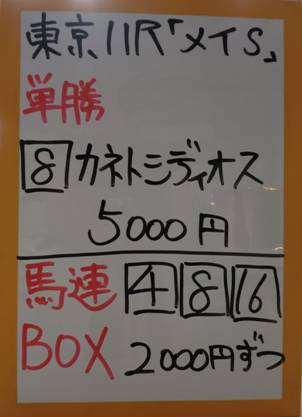 東京11R「メイS」
単勝
8 カネトシディオス
5000円
馬連 4 8 16
BOX 2000円ずつ